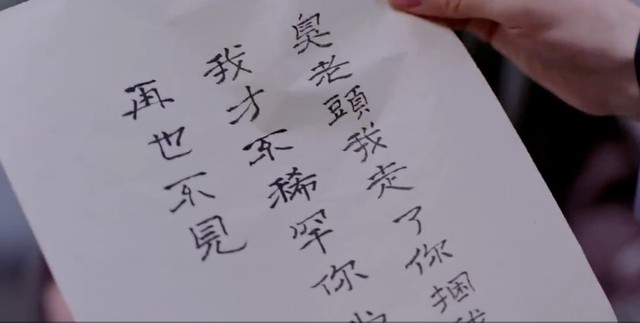 臭老頭我走了你捆
我才不稀罕你
再也不見